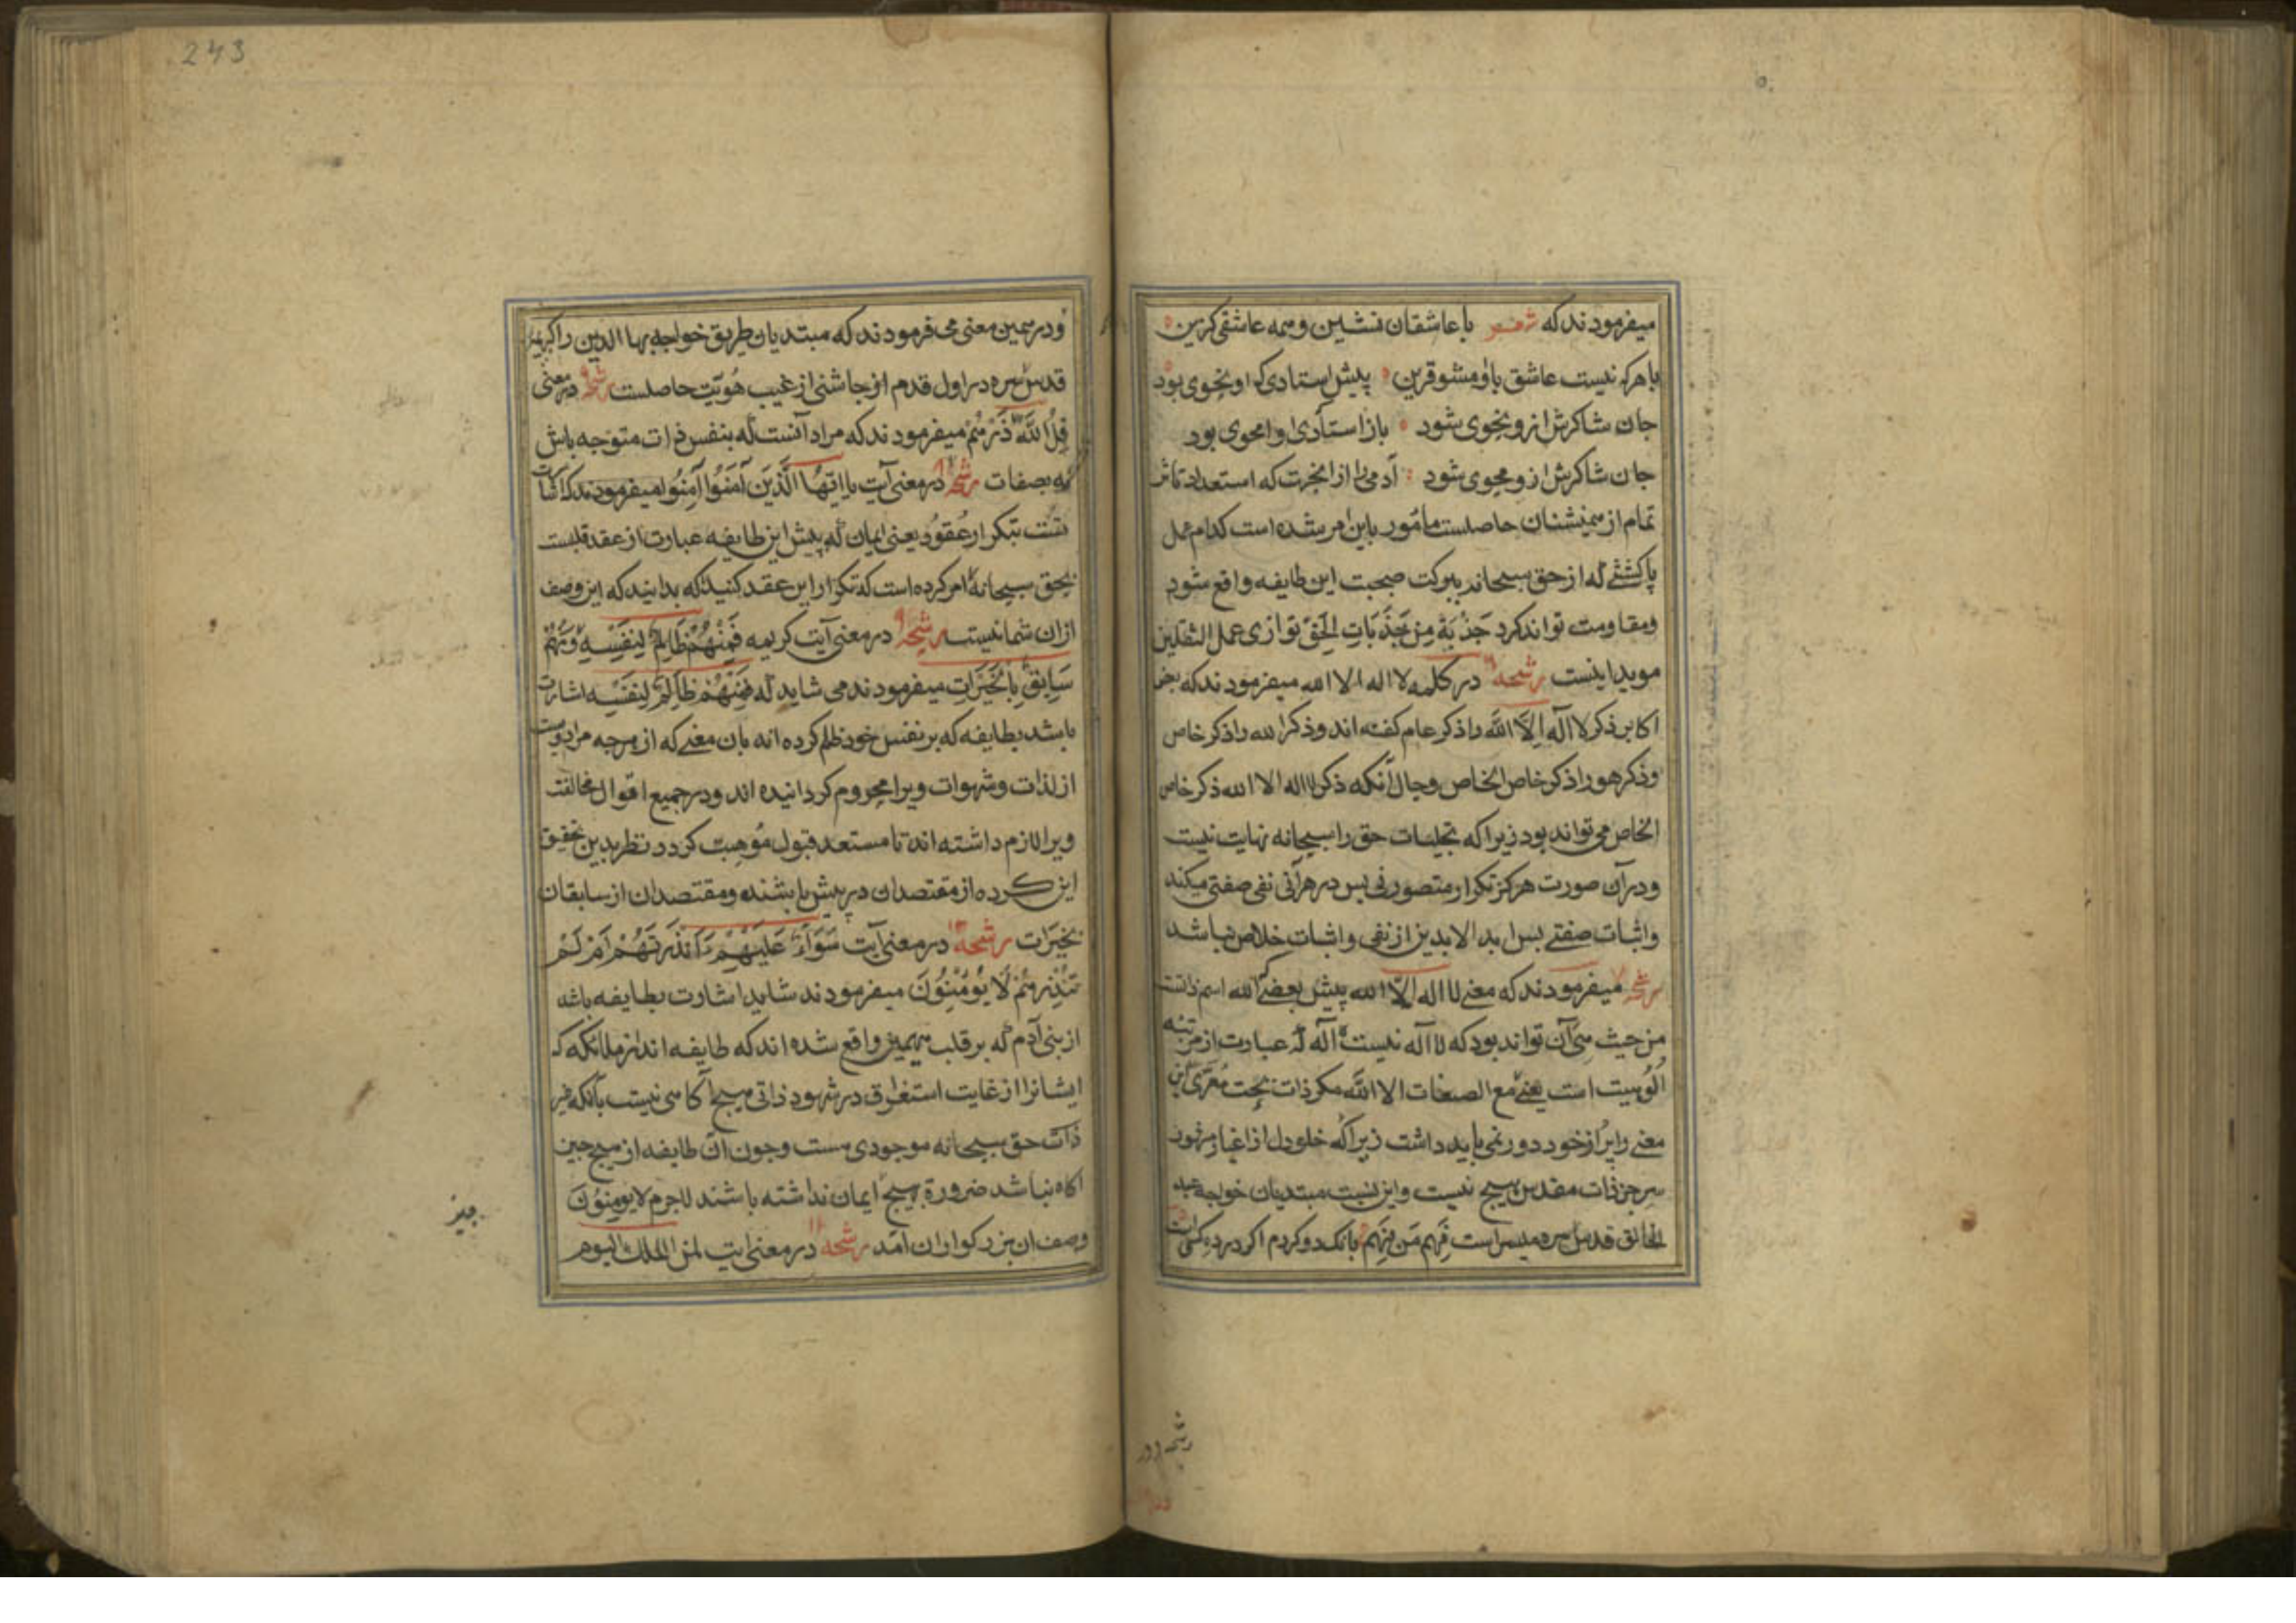 میفرمودند که شعر با عاشقان نشین و همه عاشقی کزین
با هرکه نیست عاشق با او مشو قرین پیش استادی که او نحوی بود
جان شاکرش ازو نحوی شود باز استادی که او محوی بود
جان شاکرش ازو محوی شود آدمی را از انجهت که استعداد تاثر
تمام از همنشنان حاصلست مامور باین امر شده است کدام عمل
با کششی که از حق سبحانه ببرکت صحبت این طایفه واقع شود
ومقاومت تواند کرد جَذْبَةٌ مِن جَذَبَاتِ الحَقّ توازی عمل الثقلین
موید اینست رشحه در کلمه لا اله الا الله میفرمودند که بعضی
اکابر ذکر لا اله اِلَّا اللَّه را ذکر عام کفته اند وذکر الله را ذکر خاص
وذکر هو را ذکر خاص الخاص وحال آنکه ذکر لا اله الا الله ذکر خاص
الخاص می تواند بود زیرا که تجلیات حق را سبحانه نهایت نیست
ودران صورت هرکز تکرار متصور نی پس در هر آنی نفی صفتی میکند
واثبات صفتی پس ابد الابدین از نفی واثبات خلاص نباشد
رشحه میفرمودند که معنی لا اله الّا الله پیش بعضی که الله اسم ذاتست
من حیث هی آن تواند بود که لا اله نیست اله که عبارت از مرتبه
الُوهیت است یعنی مع الصفات الا اللَّه مکر ذات بحت مُعَرّی این
معنی را پر از خود دور نمی باید داشت زیرا که خلو دل از اغیار
سر جز ذات مقدس هیچ نیست واین نسبت مبتدیان خواجه عبد
الخالق قدس سره میسر است فَهِمَ مَن فَهِمَ بانک دو کردم اکر در ده کس است
ودر همین معنی می فرمودند که مبتدیان طریق خواجه بها الدین را
قدس سره در اول قدم از جاشنی از غیب هُویّت حاصلست رشحه در معنی
قُلِ اللَّه ذَرْهُمْ میفرمودند که مراد آنست که بنفس ذات متوجه باش
نه بصفات رشحه در معنی آیت یا اَیّهَا الَّذِینَ آمَنُوا آمِنُوا میفرمودند که اشارت
بتکرار عُقوُد یعنی ایمان که پیش این طایفه عبارت از عقد قلبست
بحق سبحانه امر کرده است که تکرار این عقد کنید که بدانید که این وصف
ازان شما نیست رشحه در معنی آیت کریمه فَمِنْهُمْ ظَالِمٌ لِنَفْسِهِ وَمِنْهُمْ
سَابِقٌ بِالخَیْرَاتِ میفرمودند می شاید که فَمِنْهُمْ ظَالِمٌ لِنَفْسِهِ اشارت
باشد بطایفه که بر نفس خود ظلم کرده اند بان معنی که از هرجه مراد اوست
از لذات وشهوات ویرا محروم کردانیده اند ودر جمیع احوال مخالفت
ویرا لازم داشته اند تا مستعد قبول مُوهبت کردد نظر بدین تحقیق
این کرده از مقتصدان در پیش باشند ومقتصدان از سابقان
بخَیرَات رشحه در معنی آیت سَوَآءٌ عَلَیْهِمْ ءَاَنذَرتَهُمْ اَمْ لَمْ
تُنْذِرهُمْ لَا یُوْمِنُونَ میفرمودند شاید اشارت بطایفه باشد
از بنی آدم که بر قلب مهیمین واقع شده اند که طایفه اند از ملائکه که
ایشانرا از غایت استغراق در شهود ذاتی هیچ آکاهی نیست بانکه غیر
ذات حق سبحانه موجودی هست وجون ان طایفه از هیچ جیز
آکاه نباشد ضرورة بهیچ ایمان نداشته باشند لاجرم لا یومِنوُنَ
وصف ان بزرکواران آمد رشحه در معنی آیت لمن الملک الیوم
چیز
رشحه در
243